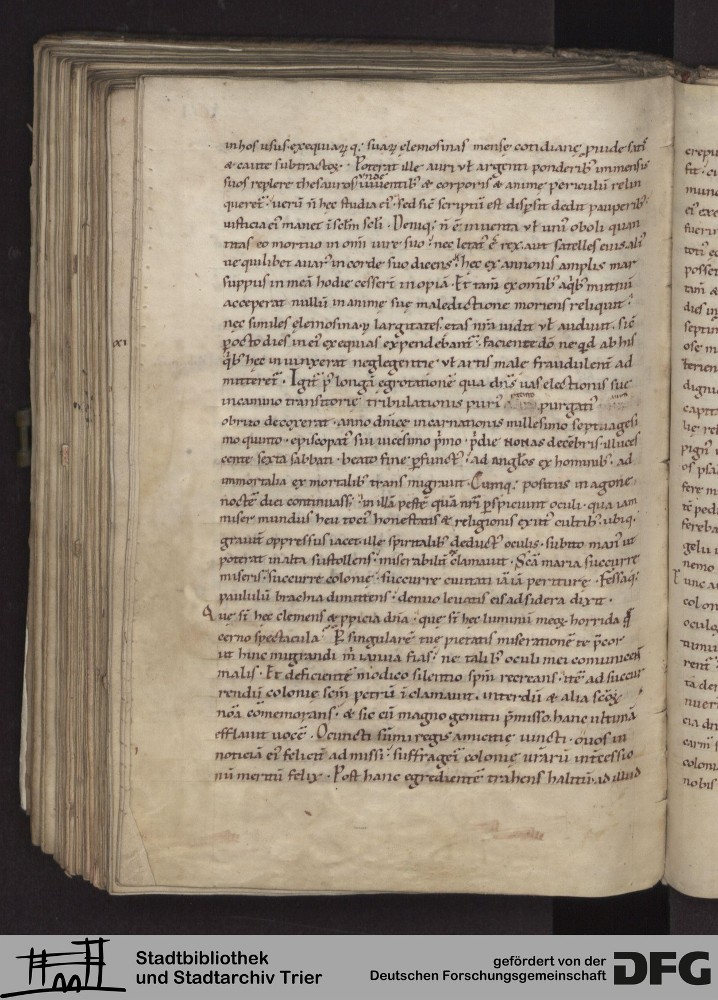 in hos usus exequiaꝝ q; suaꝝ elemosinas mense cotidiane ꝓuide satis
& caute subtractas. Poterat ille auri vł argenti ponderib; inmensis
suos replere thesauros uiuentib; & corporis & anime periculū relin
queret. uerū n̄ hec studia ei; sed sic scriptū est dispsit dedit pauperib;
iusticia ei manet
Deniq; n̄ ē inuenta vł uni; oboli quan
titas eo mortuo in om̄i iure suo. nec letat; ē rex aut satelles eius alī
ue quilibet auar; in corde suo dicens. hec ex annonis amplis mar
suppus in meā hodie cesserī inopiā. Et tam̄ ex om̄ib; a qb; mutui
acceperat nullū in anime sue maledictione moriens reliquit.
nec similes elemosinaꝝ largitates etas nr̄a uidit vł audiuit. sic
ꝑ octo dies in ei; exequias expendebant. faciente dō ne qd ab his
qb; hec iniunxerat neglegentie vł artis male fraudulent ad
mitteret. Igit p; longā egrotationē qua dn̄s uas electionis sue
in camino transitorie tribulationis
purgati
obrizo decoxerat. anno dn̄ice incarnationis millesimo septuagesi
mo quinto. episcopat; sui uicesimo p̄mo. p̄die NONAS decēbris illuces
cente sexta sabbati. beato fine ꝑfunct; ad angłos ex hominib; ad
immortalia ex mortalib; transmigrauit. Cumq; positus in agone
noctē diei continuass; in illā pestē quā nr̄i ꝑspiciunt oculi. qua iam
miser mundus heu toci; honestatis & religionis exuit cultib; ubiq;
grauit oppressus iacet. ille spiritalib; deduct; oculis subito man; ut
poterat in alta sustollens. miserabilit clamauit. Sc̄a maria succurre
miseris. succurre colonie. succurre ciuitati iā iā periture. Fessaq;
paululū brachia dimittens. denuo leuatis eis ad sidera dixit.
Que st̄ hec clemens & ppicia dn̄a. que st̄ hec luminū meoꝝ horrida q̄
cerno spectacula. Ꝑ singularē tue pietatis miserationē te p̄cor
ut hinc migrandi m̄ ianua fias. ne talib; oculi mei comunicent
malis. Et deficientē modico silentio spm̄ recreans. itē ad succur
rendū colonie sc̄m petrū īclamauit. interdū & alia sc̄oꝝ
nōa comemorans. & sic cū magno gemitu p̄misso hanc ultimā
efflauit uocē. O cuncti sūmi regis amicitie iuncti. o uos in
noticiā ei; felicit admissi. suffragēi colonie urāru intcessio
nū meritū felix. Post hanc egredientē trahens halitū ad illud
XI
Stadtbibliothek
und Stadtarchiv Trier
gefördert von der
Deutschen Forschungsgemeinschaft
DFG